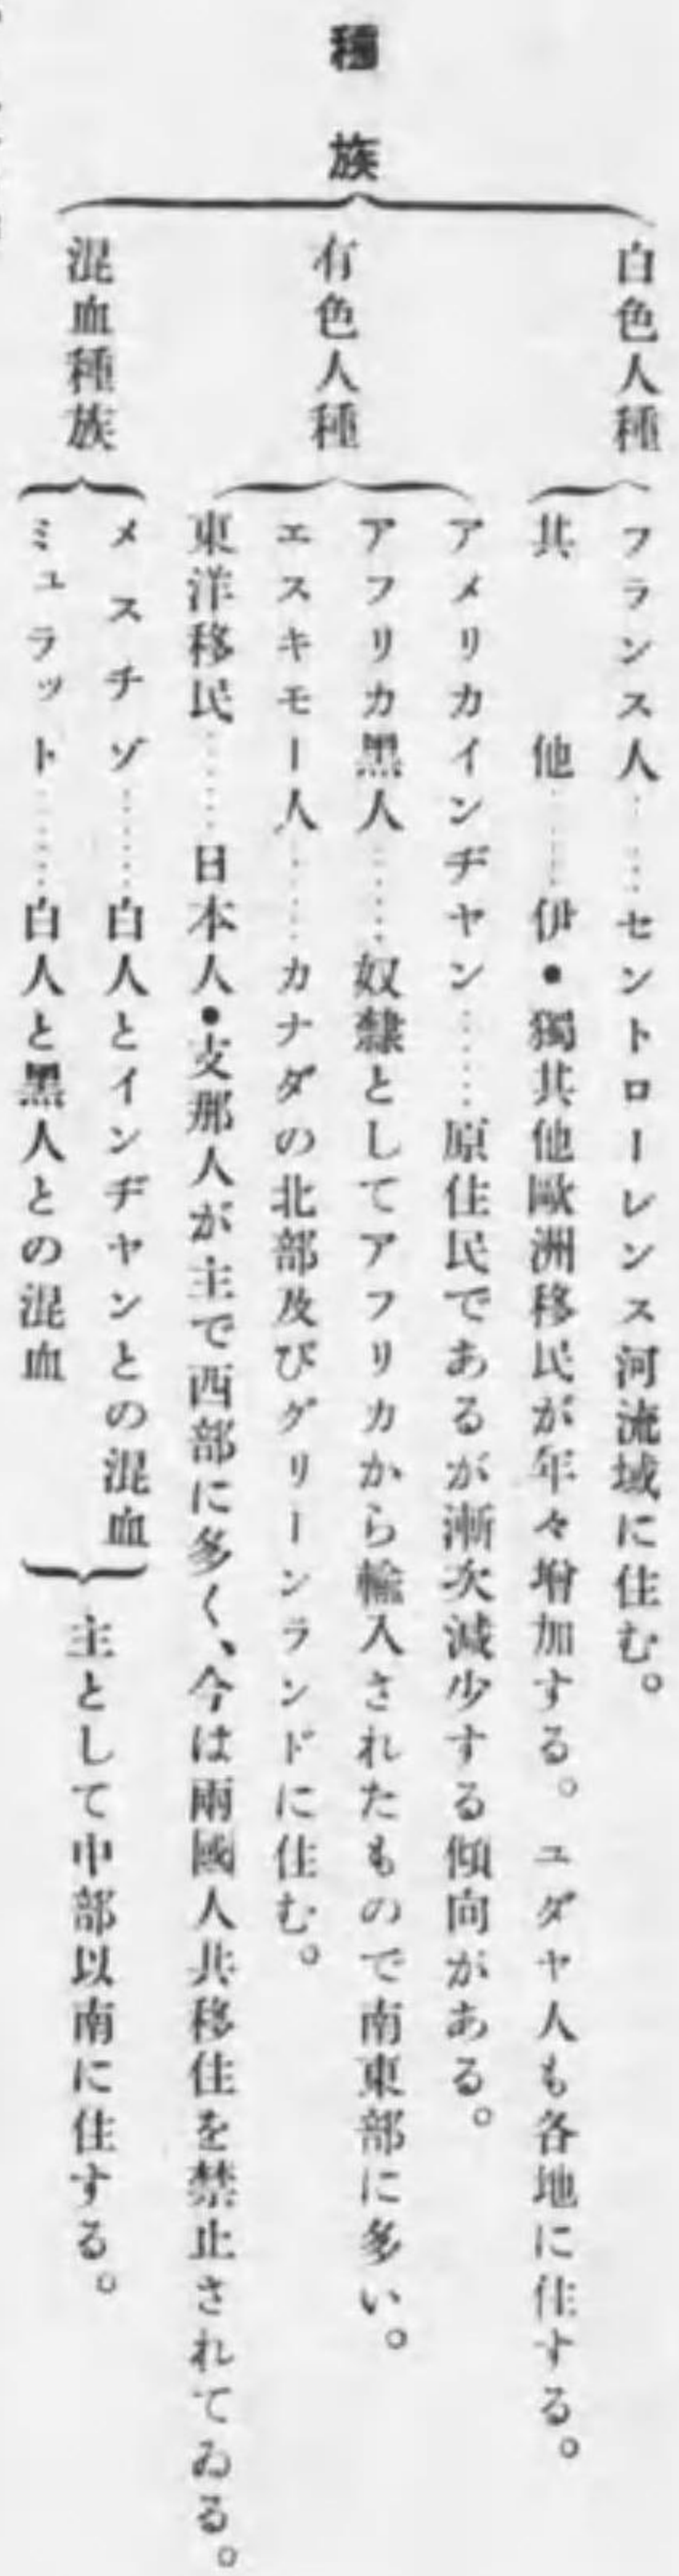 種族
白色人種
フランス人……セントローレンス河流域に住む。
其他……伊・獨其他歐洲移民が年々增加する。ユダヤ人も各地に住する。
有色人種
アメリカインヂヤン……原住民であるが漸次減少する傾向がある。
アフリカ黑人……奴隸としてアフリカから輸入されたもので南東部に多い。
エスキモー人……カナダの北部及びグリーンランドに住む。
東洋移民……日本人・支那人が主で西部に多く、今は兩國人共移住を禁止されてゐる。
混血種族
メスチゾ……白人とインヂヤンとの混血
ミュラット……白人と黑人との混血
主として中部以南に住する。